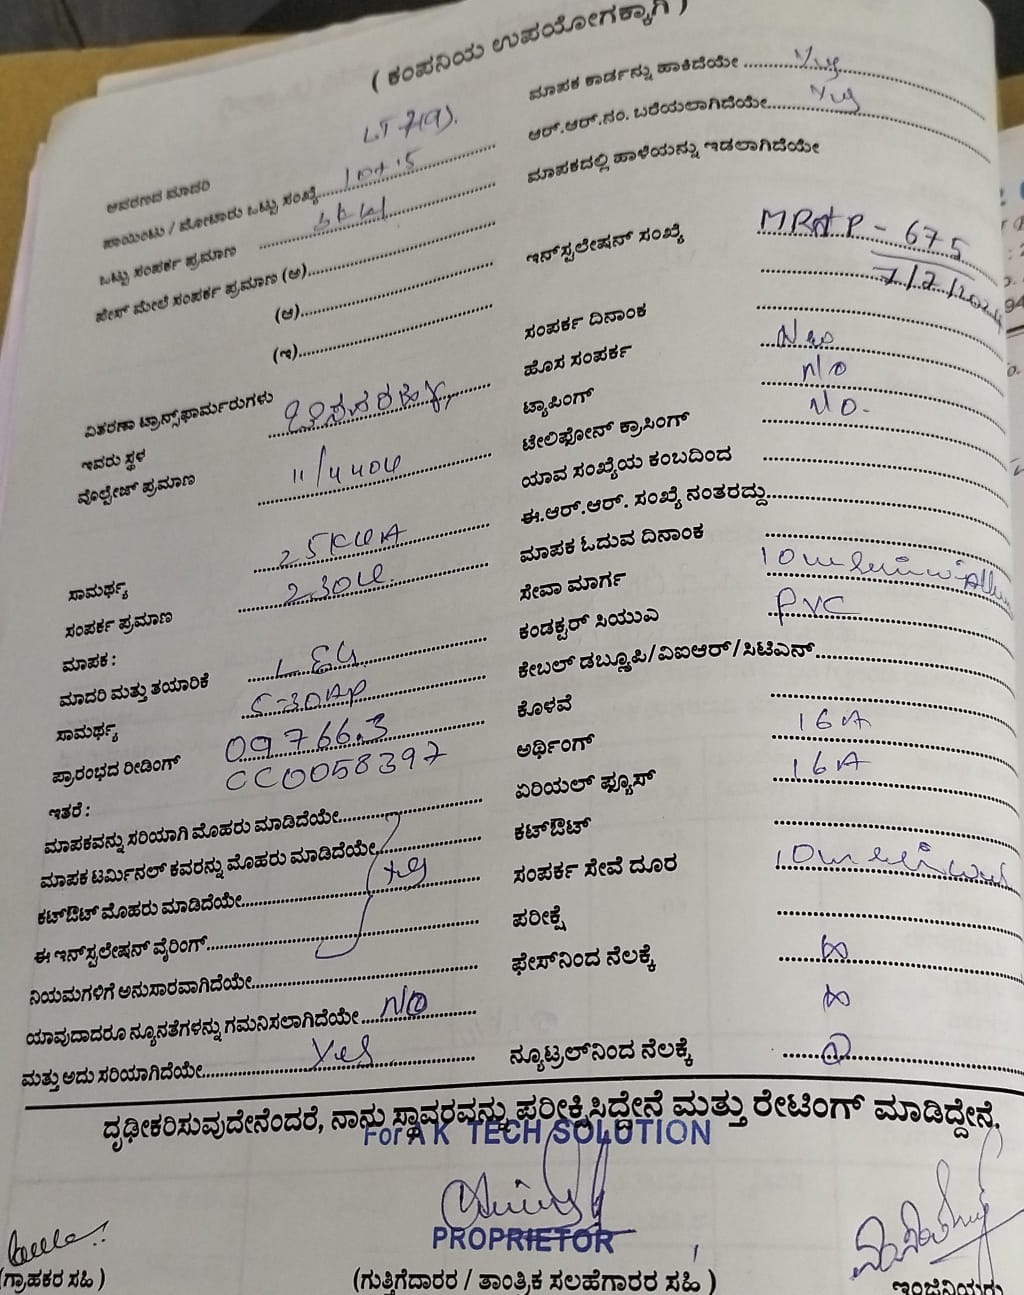 ( ಕಂಪನಿಯ ಉಪಯೋಗಕ್ಕಾಗಿ )
ಮಾಪಕ ಕಾರ್ಡನ್ನು ಹಾಕಿದೆಯೇ
ಆರ್.ಆರ್.ನಂ. ಬರೆಯಲಾಗಿದೆಯೇ
ಮಾಪಕದಲ್ಲಿ ಹಾಳೆಯನ್ನು ಇಡಲಾಗಿದೆಯೇ
ಆವರಣದ ಮಾದರಿ LT-7(a).
ಪಾಯಿಂಟು / ಮೋಟಾರು ಒಟ್ಟು ಸಂಖ್ಯೆ 10+15
ಒಟ್ಟು ಸಂಪರ್ಕ ಪ್ರಮಾಣ
ಫೇಸ್ ಮೇಲೆ ಸಂಪರ್ಕ ಪ್ರಮಾಣ (ಅ)
(ಆ)
(ಇ)
ವಿತರಣಾ ಟ್ರಾನ್ಸ್‌ಫಾರ್ಮರುಗಳು
ಇವರು ಸ್ಥಳ
ವೊಲ್ಟೇಜ್ ಪ್ರಮಾಣ 11/440V
ಸಾಮರ್ಥ್ಯ 25KVA
ಸಂಪರ್ಕ ಪ್ರಮಾಣ 230V
ಮಾಪಕ :
ಮಾದರಿ ಮತ್ತು ತಯಾರಿಕೆ
ಸಾಮರ್ಥ್ಯ 5-30AP
ಪ್ರಾರಂಭದ ರೀಡಿಂಗ್ 09766.3
CC0058397
ಇತರೆ :
ಮಾಪಕವನ್ನು ಸರಿಯಾಗಿ ಮೊಹರು ಮಾಡಿದೆಯೇ
ಮಾಪಕ ಟರ್ಮಿನಲ್ ಕವರನ್ನು ಮೊಹರು ಮಾಡಿದೆಯೇ
ಕಟ್‌ಔಟ್ ಮೊಹರು ಮಾಡಿದೆಯೇ Yes
ಈ ಇನ್‌ಸ್ಪಲೇಷನ್ ವೈರಿಂಗ್
ನಿಯಮಗಳಿಗೆ ಅನುಸಾರವಾಗಿದೆಯೇ
ಯಾವುದಾದರೂ ನ್ಯೂನತೆಗಳನ್ನು ಗಮನಿಸಲಾಗಿದೆಯೇ No
ಮತ್ತು ಅದು ಸರಿಯಾಗಿದೆಯೇ Yes
ಇನ್‌ಸ್ಪಲೇಷನ್ ಸಂಖ್ಯೆ MRAP - 675
7/2/2024
ಸಂಪರ್ಕ ದಿನಾಂಕ
ಹೊಸ ಸಂಪರ್ಕ
ಟ್ಯಾಪಿಂಗ್ No
ಟೇಲಿಫೋನ್ ಕ್ರಾಸಿಂಗ್ No.
ಯಾವ ಸಂಖ್ಯೆಯ ಕಂಬದಿಂದ
ಈ.ಆರ್.ಆರ್. ಸಂಖ್ಯೆ ನಂತರದ್ದು
ಮಾಪಕ ಓದುವ ದಿನಾಂಕ
ಸೇವಾ ಮಾರ್ಗ
ಕಂಡಕ್ಟರ್ ಸಿಯುಎ PVC
ಕೇಬಲ್ ಡಬ್ಲ್ಯೂಪಿ/ವಿಐಆರ್/ಸಿಟಿಎಸ್
ಕೊಳವೆ
ಅರ್ಥಿಂಗ್ 16A
ಏರಿಯಲ್ ಫ್ಯೂಸ್ 16A
ಕಟ್‌ಔಟ್
ಸಂಪರ್ಕ ಸೇವೆ ದೂರ
ಪರೀಕ್ಷೆ
ಫೇಸ್‌ನಿಂದ ನೆಲಕ್ಕೆ ∞
∞
ನ್ಯೂಟ್ರಲ್‌ನಿಂದ ನೆಲಕ್ಕೆ
ದೃಢೀಕರಿಸುವುದೇನೆಂದರೆ, ನಾನು ಸ್ಥಾವರವನ್ನು ಪರೀಕ್ಷಿಸಿದ್ದೇನೆ ಮತ್ತು ರೇಟಿಂಗ್ ಮಾಡಿದ್ದೇನೆ.
For A K TECH SOLUTION
PROPRIETOR
(ಗ್ರಾಹಕರ ಸಹಿ )
(ಗುತ್ತಿಗೆದಾರರ / ತಾಂತ್ರಿಕ ಸಲಹೆಗಾರರ ಸಹಿ )